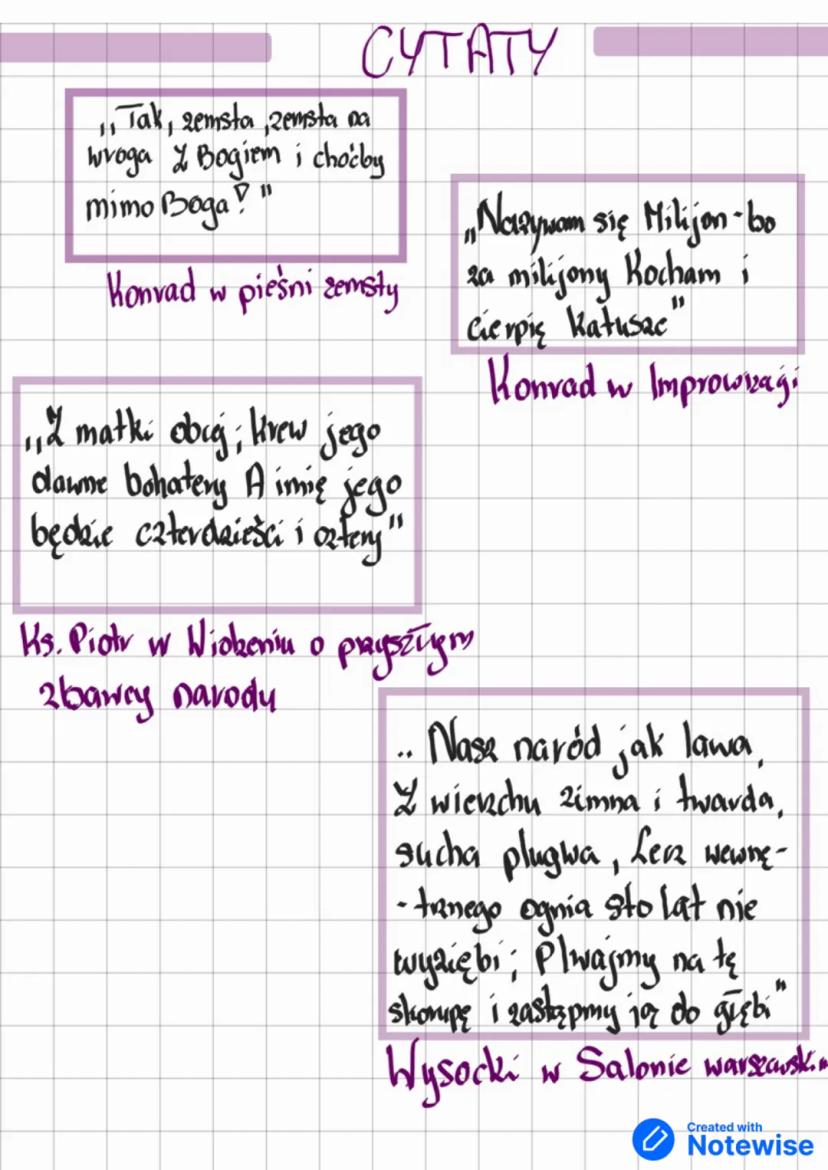 CYTATY
„Tak, zemsta, zemsta na
wroga Z Bogiem i choćby
mimo Boga!"
Konrad w pieśni zemsty
„Nazywam się Milijon - bo
za milijony Kocham i
cierpię katusze"
Konrad w Improwizacji
„Z matki obcej; krew jego
dawne bohatery A imię jego
będzie czterdzieści i cztery"
Ks. Piotr w Widzeniu o przyszłym
zbawcy narodu
.. Nasz naród jak lawa,
Z wierzchu zimna i twarda,
sucha plugwa, Lecz wewnę-
-trznego ognia sto lat nie
wyziębi; Plwajmy na tę
skorupę i zastąpmy ją do głębi"
Wysocki w Salonie warszawskim
Created with
Notewise